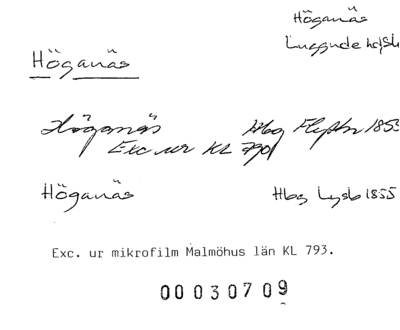 Höganäs
Luggude hd
Höganäs
Höganäs Hbg 1855
Exc ur KL 790
Höganäs Hbg Lysb 1855
Exc. ur mikrofilm Malmöhus län KL 793.
00030709